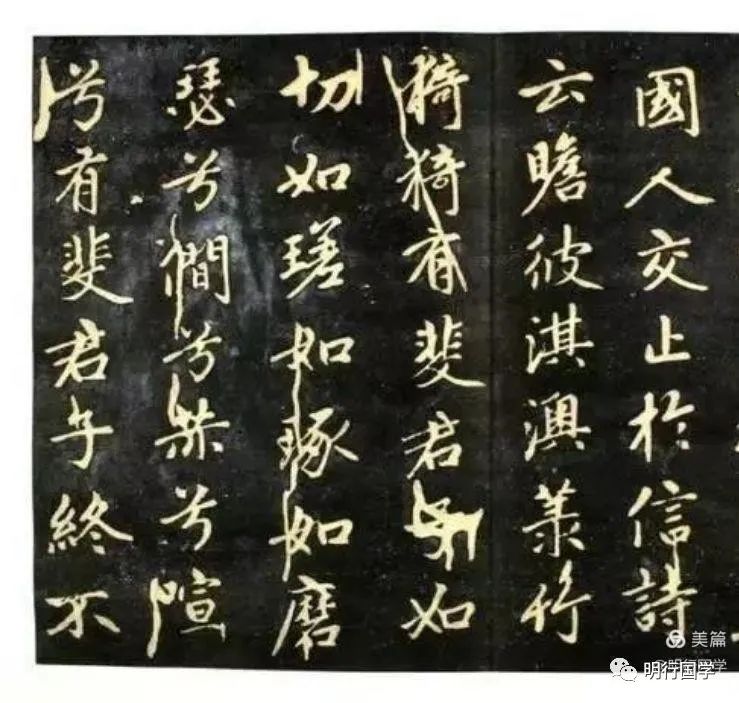 國人交止於信詩
云瞻彼淇澳菉竹
猗猗有斐君子如
切如磋如琢如磨
瑟兮僩兮赫兮喧
兮有斐君子終不
美篇
明行国学